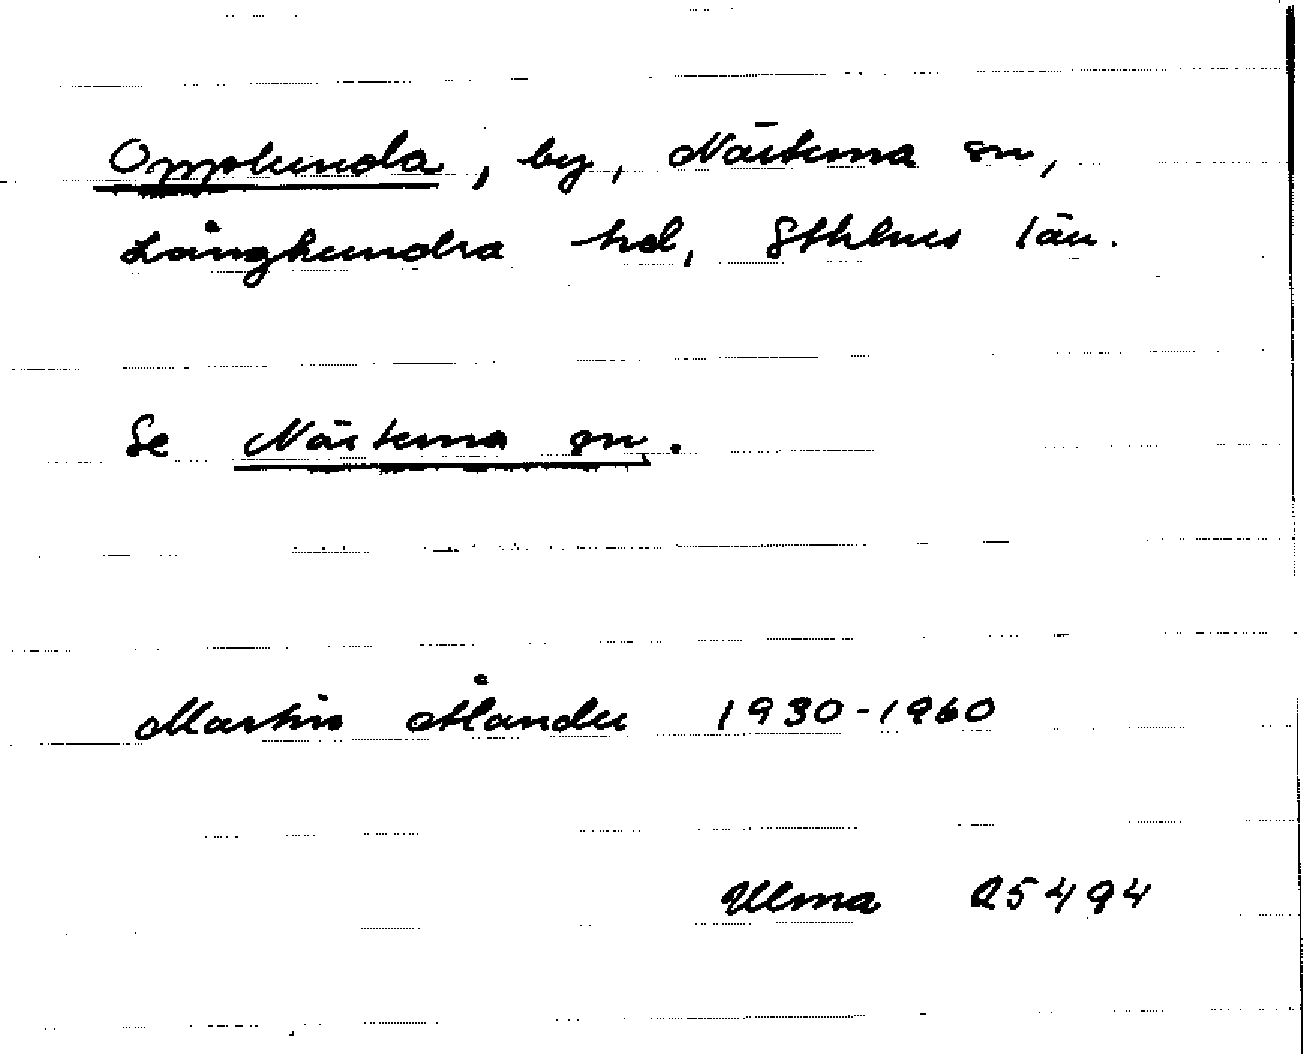 Opplunda, by, Närtuna sn,
Långhundra hd, Sthlms län.
Se Närtuna sn.
Martin Ålander 1930-1960
Ulma 25494